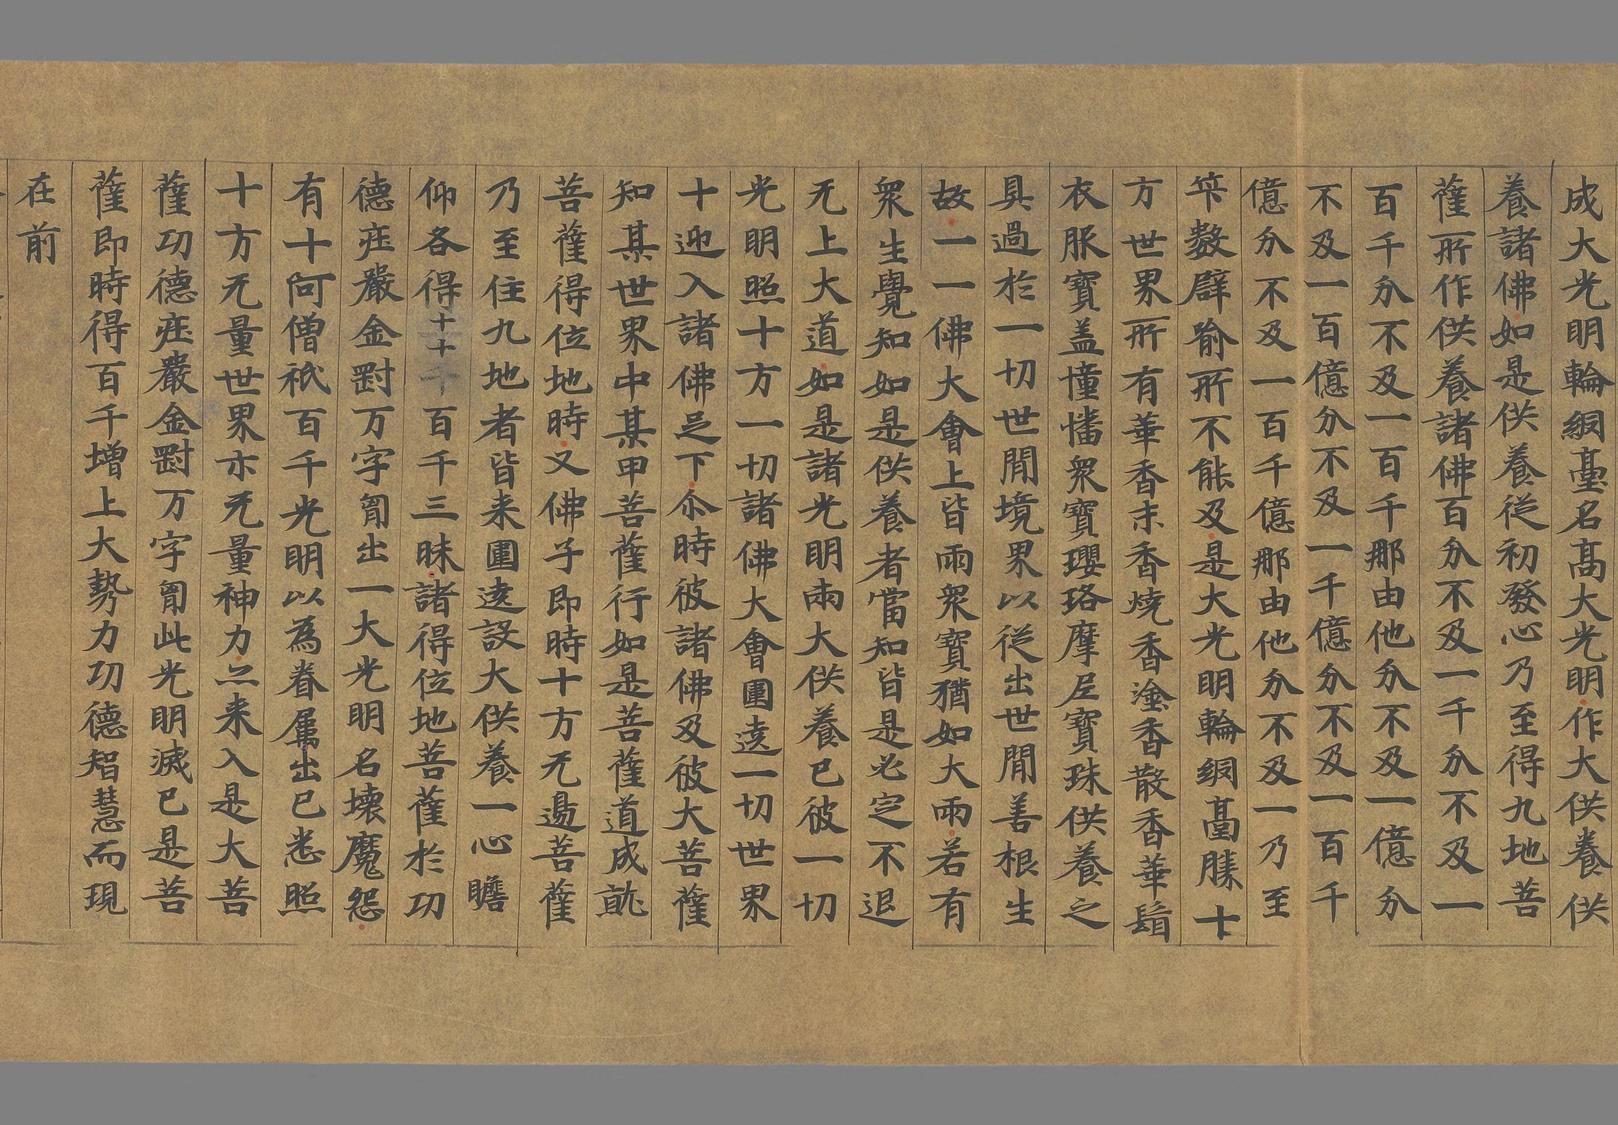 成大光明輪綱臺名髙大光明作大供養供
養諸佛如是供養從初發心乃至得九地菩
薩所作供養諸佛百分不及一千分不及一
百千分不及一百千那由他分不及一億分
不及一百億分不及一千億分不及一百千
億分不及一百千億那由他分不及一乃至
筭數譬喻所不能及是大光明輪綱臺勝十
方世界所有華香末香燒香塗香散香華鬘
衣服寶盖憧憣衆寶瓔珞摩尼寶珠供養之
具過於一切世閒境界以從出世閒善根生
故一一佛大會上皆雨衆寶猶如大雨若有
衆生覺知如是供養者當知皆是必定不退
无上大道如是諸光明雨大供養已彼一切
光明照十方一切諸佛大會圍遶一切世界
十迊入諸佛足下尒時彼諸佛及彼大菩薩
知某世界中某甲菩薩行如是菩薩道成就
菩薩得位地時又佛子即時十方无邊菩薩
乃至住九地者皆来圍遶設大供養一心瞻
仰各得十十千百千三昧諸得位地菩薩於功
德疰嚴金剛万字胷出一大光明名壞魔怨
有十阿僧祇百千光明以為眷属出已悉照
十方无量世界亦无量神力亦来入是大菩
薩功德疰嚴金剛万字胷此光明滅已是菩
薩即時得百千增上大勢力功德智慧而現
在前